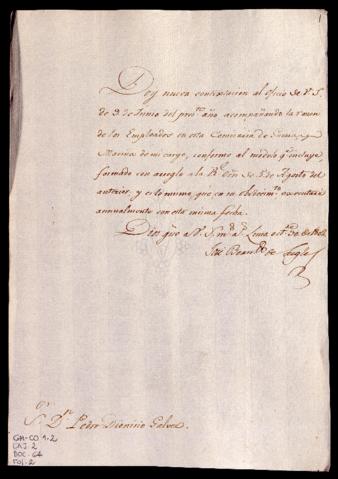 1
Doy nueva contextacion al Oficio de V. S.
de 9. de Junio del pres.te año acompañando la razon
de los Empleados en esta Comisaria de Guerra y
Marina de mi cargo, conforme al modelo q.e incluye
formado con arreglo a la R.l Orn de 5. de Agosto del
anterior, y esto mismo, que en su obedecim.to executaré
annualmente con esta misma fecha.
Dios gue a V. S. m.s a.s Lima
José de
S.or D.n Pedro Dionisio Galvez.
GM-CO 1.2
CAJ. 2
DOC. 64
FOL. 2